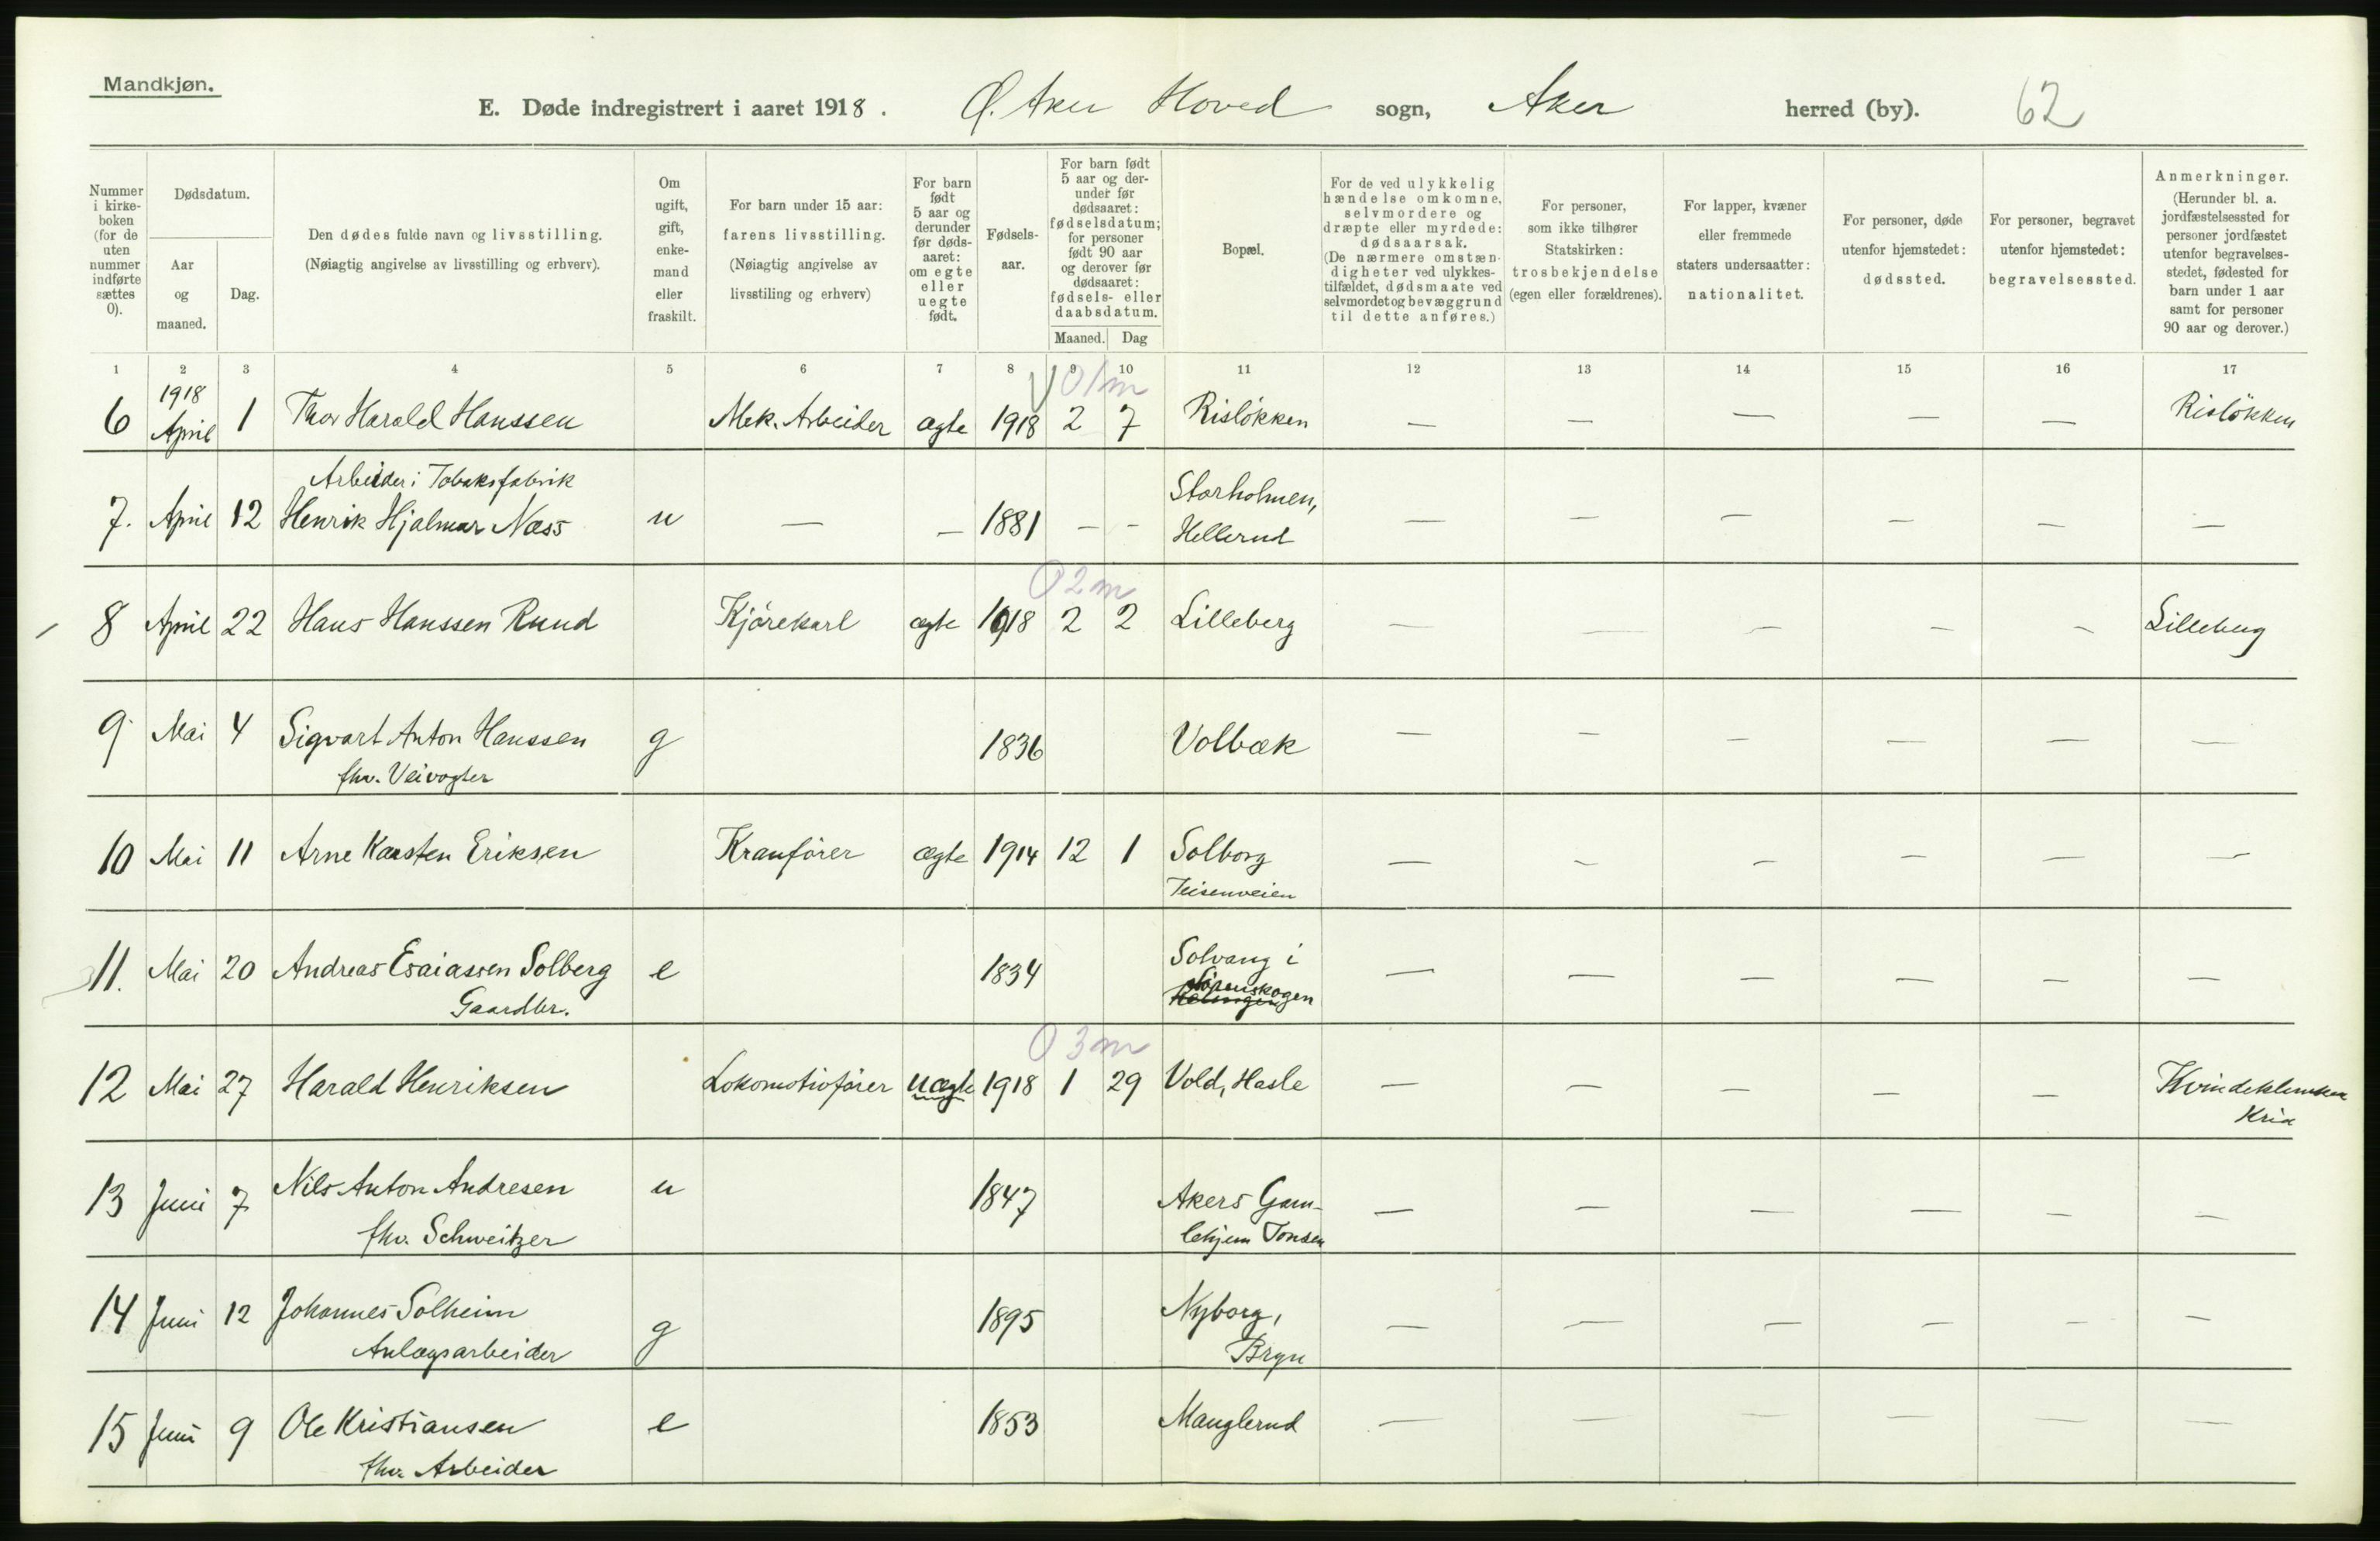 Mandkjøn.
E. Døde indregistrert i aaret 1918. Ø. Aker Hoved sogn, Aker herred (by). 62
Nummer i kirke-boken (for de uten nummer indførte sættes 0).
Dødsdatum.
Aar og maaned.
Dag.
Den dødes fulde navn og livsstilling.
(Nøiagtig angivelse av livsstilling og erhverv).
Om ugift, gift, enke-mand eller fraskilt.
For barn under 15 aar: farens livsstilling.
(Nøiagtig angivelse av livsstiling og erhverv)
For barn født 5 aar og derunder før døds-aaret: om egte eller uegte født.
Fødsels-aar.
For barn født 5 aar og der-under før dødsaaret: fødselsdatum; for personer født 90 aar og derover før dødsaaret: fødsels- eller daabsdatum.
Maaned. Dag
Bopæl.
For de ved ulykkelig hændelse omkomne, selvmordere og dræpte eller myrdede: dødsaarsak.
(De nærmere omstæn-digheter ved ulykkes-tilfældet, dødsmaate ved selvmordet og bevæggrund til dette anføres.)
For personer, som ikke tilhører Statskirken: trosbekjendelse (egen eller forældrenes).
For lapper, kvæner eller fremmede staters undersaatter: nationalitet.
For personer, døde utenfor hjemstedet: dødssted.
For personer, begravet utenfor hjemstedet: begravelsessted.
Anmerkninger.
(Herunder bl. a. jordfæstelsessted for personer jordfæstet utenfor begravelses-stedet, fødested for barn under 1 aar samt for personer 90 aar og derover.)
1 2 3 4 5 6 7 8 9 10 11 12 13 14 15 16 17
1918 0 1 m
6 April 1 Thor Harald Hanssen Mek. Arbeider ægte 1918 2 7 Risløkken — — — — — Risløkken
Arbeider i Tobaksfabrik
7. April 12 Henrik Hjalmar Næss u — — 1881 - - Storholmen, Hellerud — — — — — —
0 2 m
8 April 22 Hans Hanssen Ruud Kjørekarl ægte 1918 2 2 Lilleberg — — — — — Lilleberg
9 Mai 4 Sigvart Anton Hanssen g 1836 Volbæk — — — — — —
fhv. Veivogter
10 Mai 11 Arne Karsten Eriksen Kranfører ægte 1914 12 1 Solborg — — — — — —
Teisenveien
11. Mai 20 Andreas Esaiassen Solberg e 1834 Solvang i — — — — — —
Gaardbr. Lørenskogen
0 3 m
12 Mai 27 Harald Henriksen Lokomotivfører uægte 1918 1 29 Vold, Hasle — — — — — Kvindeklinikken
Kria
13 Juni 7 Nils Anton Andresen u 1847 Akers Gam- — — — — — —
fhv. Schweitzer lehjem Tonsen
14 Juni 12 Johannes Solheim g 1895 Nyborg, — — — — — —
Anlægsarbeider Bryn
15 Juni 9 Ole Kristiansen e 1853 Manglerud — — — — — —
fhv. Arbeider